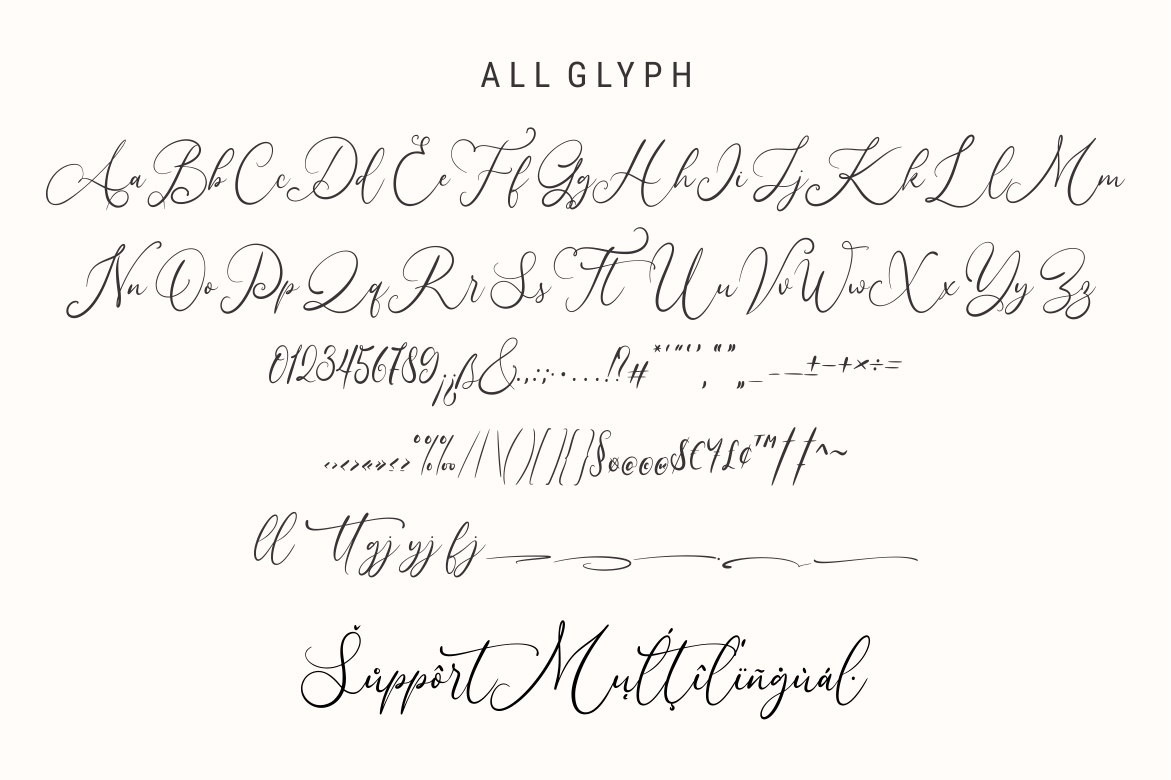 ALL GLYPH
Aa Bb Cc Dd Ee Ff Gg Hh Ii Jj Kk Ll Mm
Nn Oo Pp Qq Rr Ss Tt Uu Vv Ww Xx Yy Zz
0123456789¡¿ß&.,:;·•…!?#*'"‘’“”‚„_-–—±−+×÷=
‹›<>«»≤≥°%‰/|\()[]{}§¤©®@$€¥£¢™†‡^~
ll tt gj yj fj
Šůppôrt Mụlťţîľïñġùál.